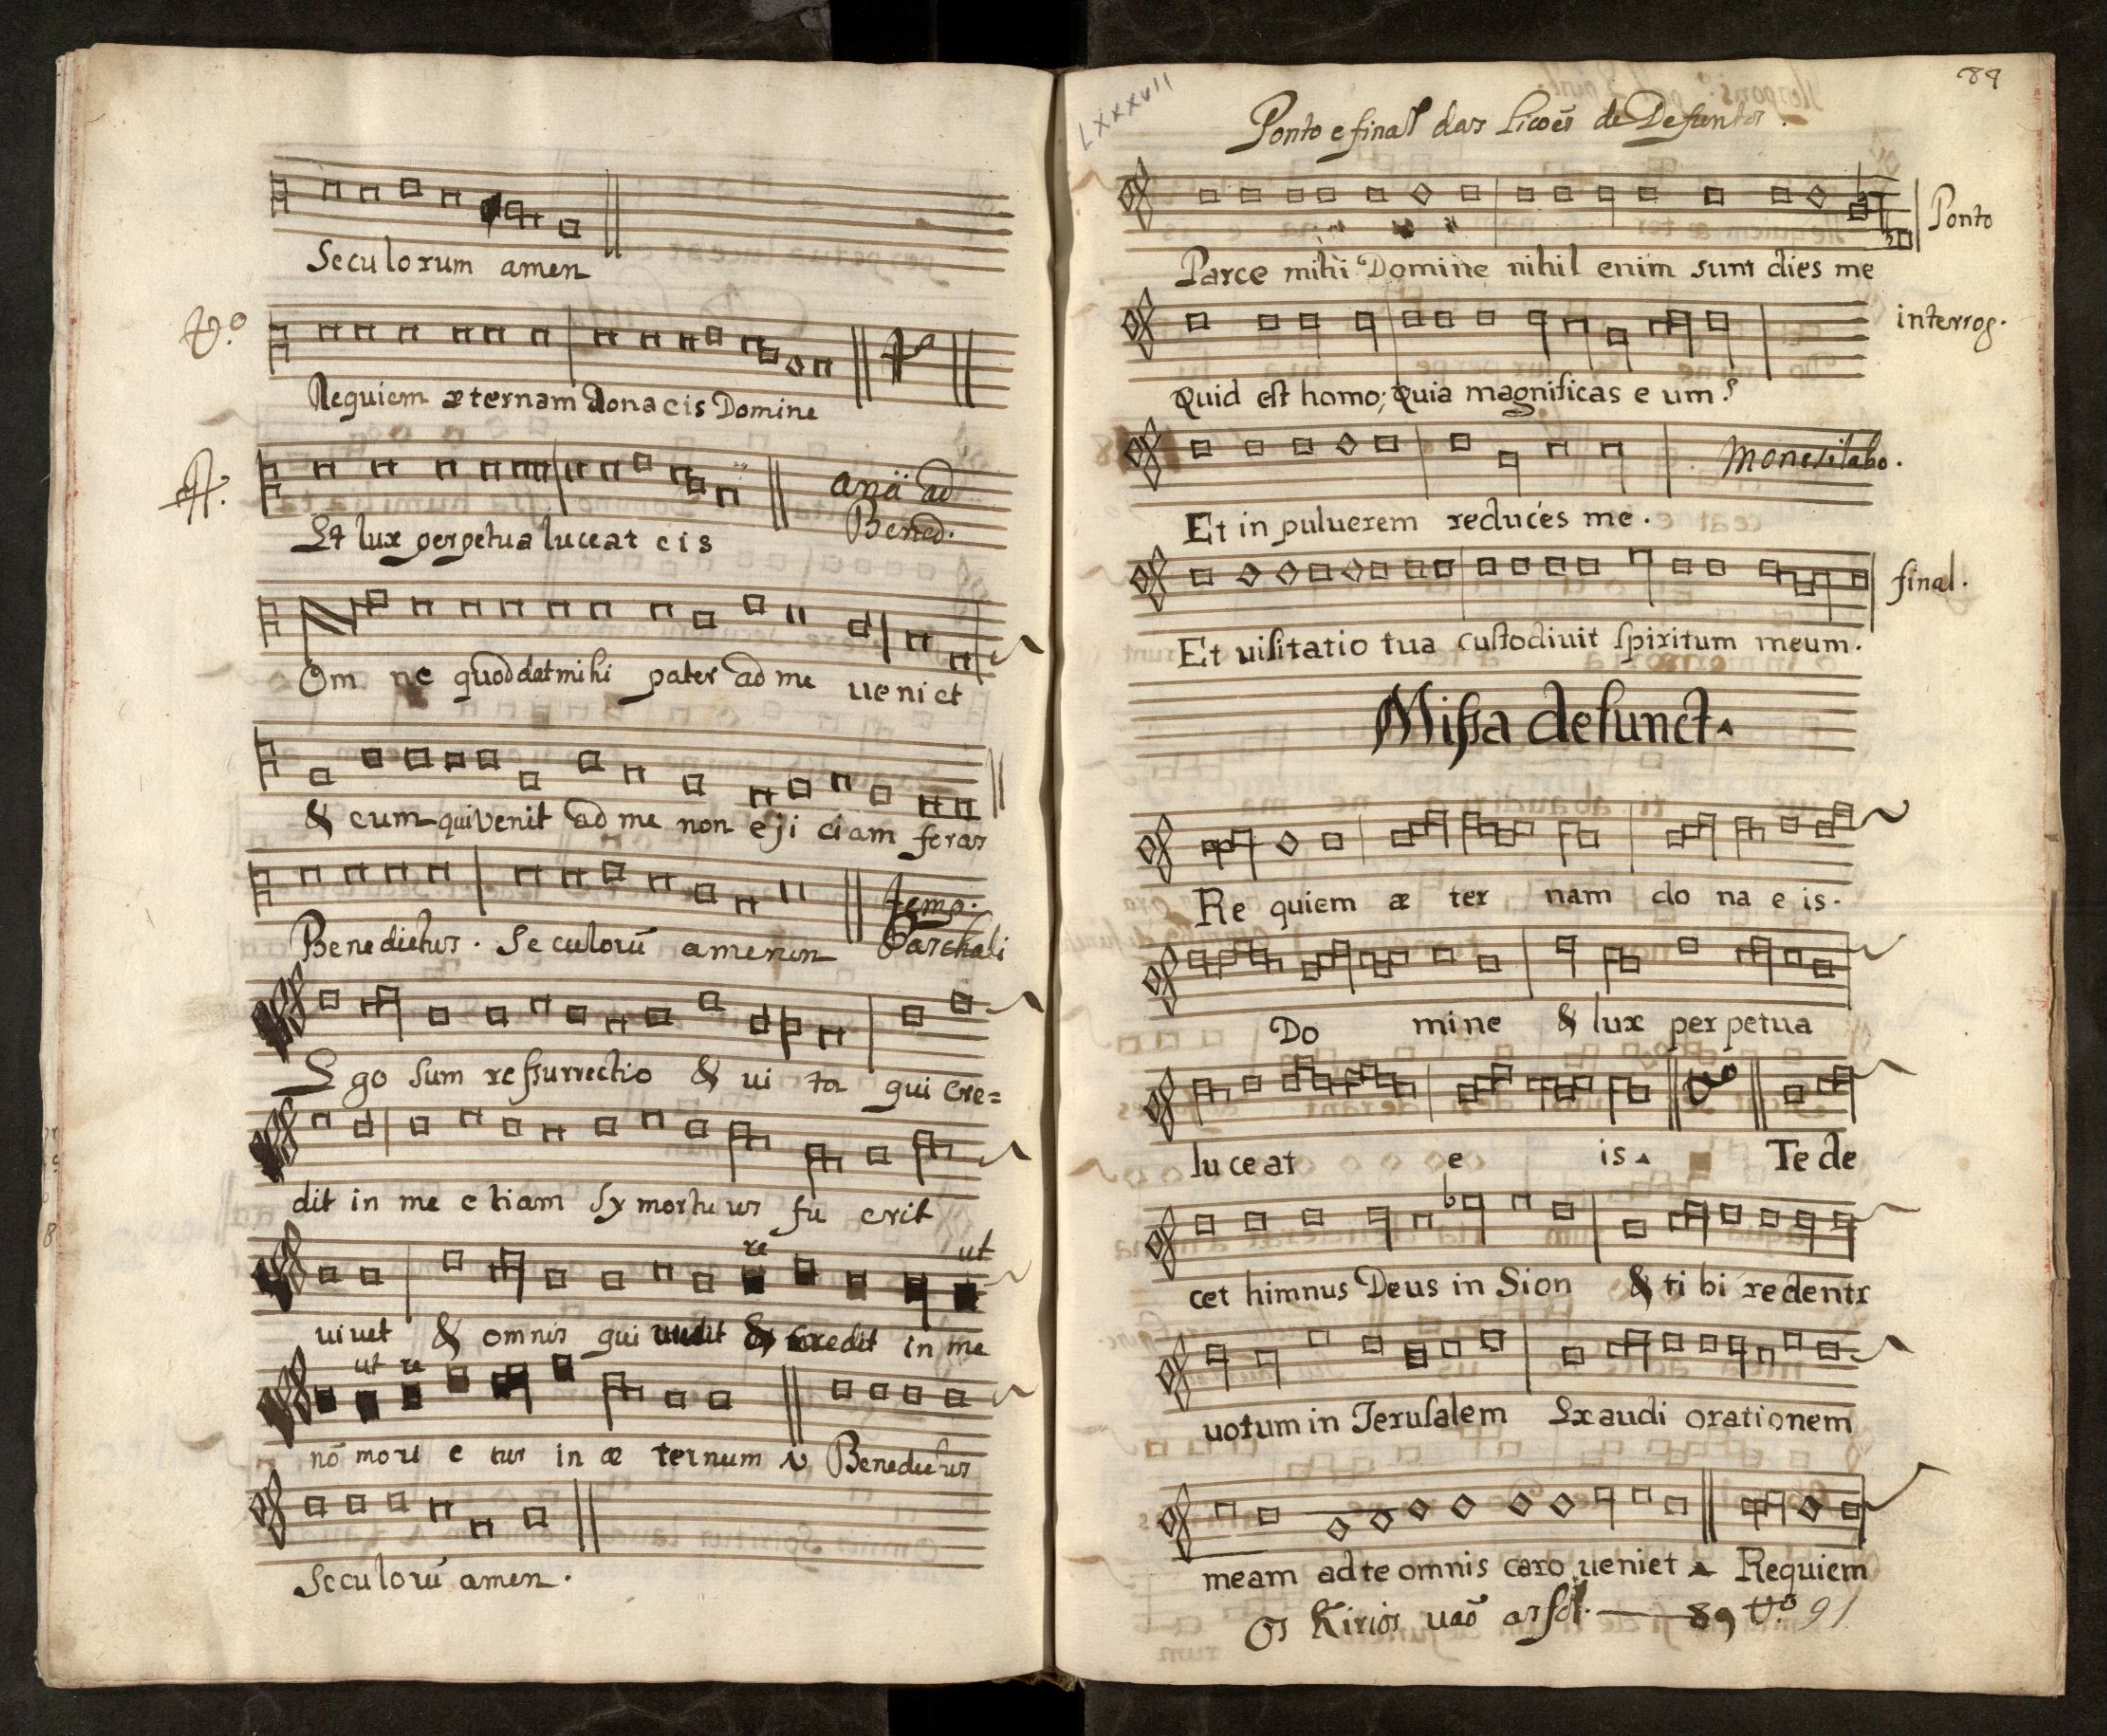 Seculorum amen
V.º
Requiem æternam dona eis Domine
Et lux perpetua luceat eis
anã ad
Bened.
Om ne quod dat mihi pater ad me ueniet
& eum qui venit ad me non eji ciam feras
Benedictus. Se culorũ amenen
temp.
Paschali
Ego sum ressurrectio & ui ta qui cre=
dit in me etiam sy mortuus fu erit
re ut
uiuet & omnis qui uiuit & credit in me
ut re
nõ mori e tur in æ ternum Benedictus
Seculorũ amen.
LXXXVII
Ponto e final das Licoẽs de Defuntos.
Ponto
Parce mihi Domine nihil enim sunt dies me
interrog.
Quid est homo; quia magnificas eum?
Monesilabo.
Et in puluerem reduces me.
final.
Et uisitatio tua custodiuit spiritum meum.
Missa defunct.
Re quiem æ ter nam do na e is.
Do mine & lux per petua
luceat e is. Te de
cet himnus Deus in Sion & ti bi redentr
uotum in Jerusalem Exaudi orationem
meam ad te omnis caro ueniet Requiem
Os Kirios uaõ as fol. 89 V.º 91